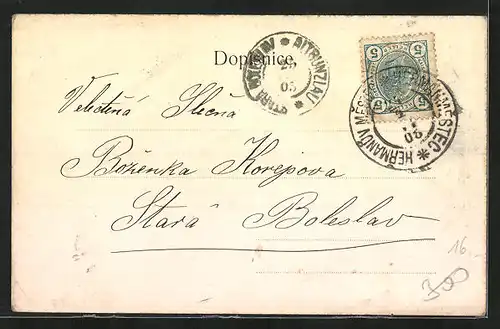 Dopisnice.
STARÁ BOLESLAV * ALTBUNZLAU *
03
5 5
5 5
HEŘMANŮV MĚSTEC *
03
Veletěná Slečna
Boženka Korejsova
Stará Boleslav
16
300